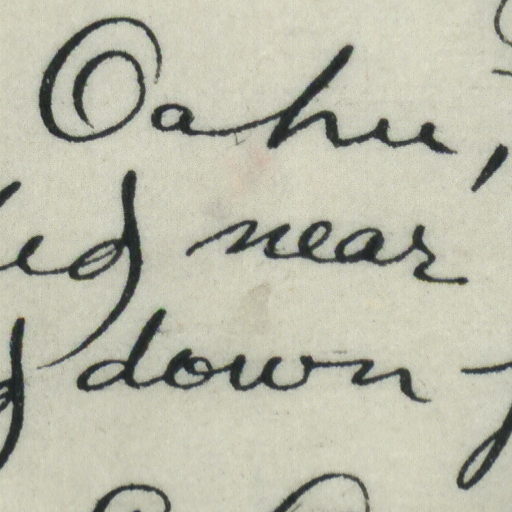 Oahu,
near
down